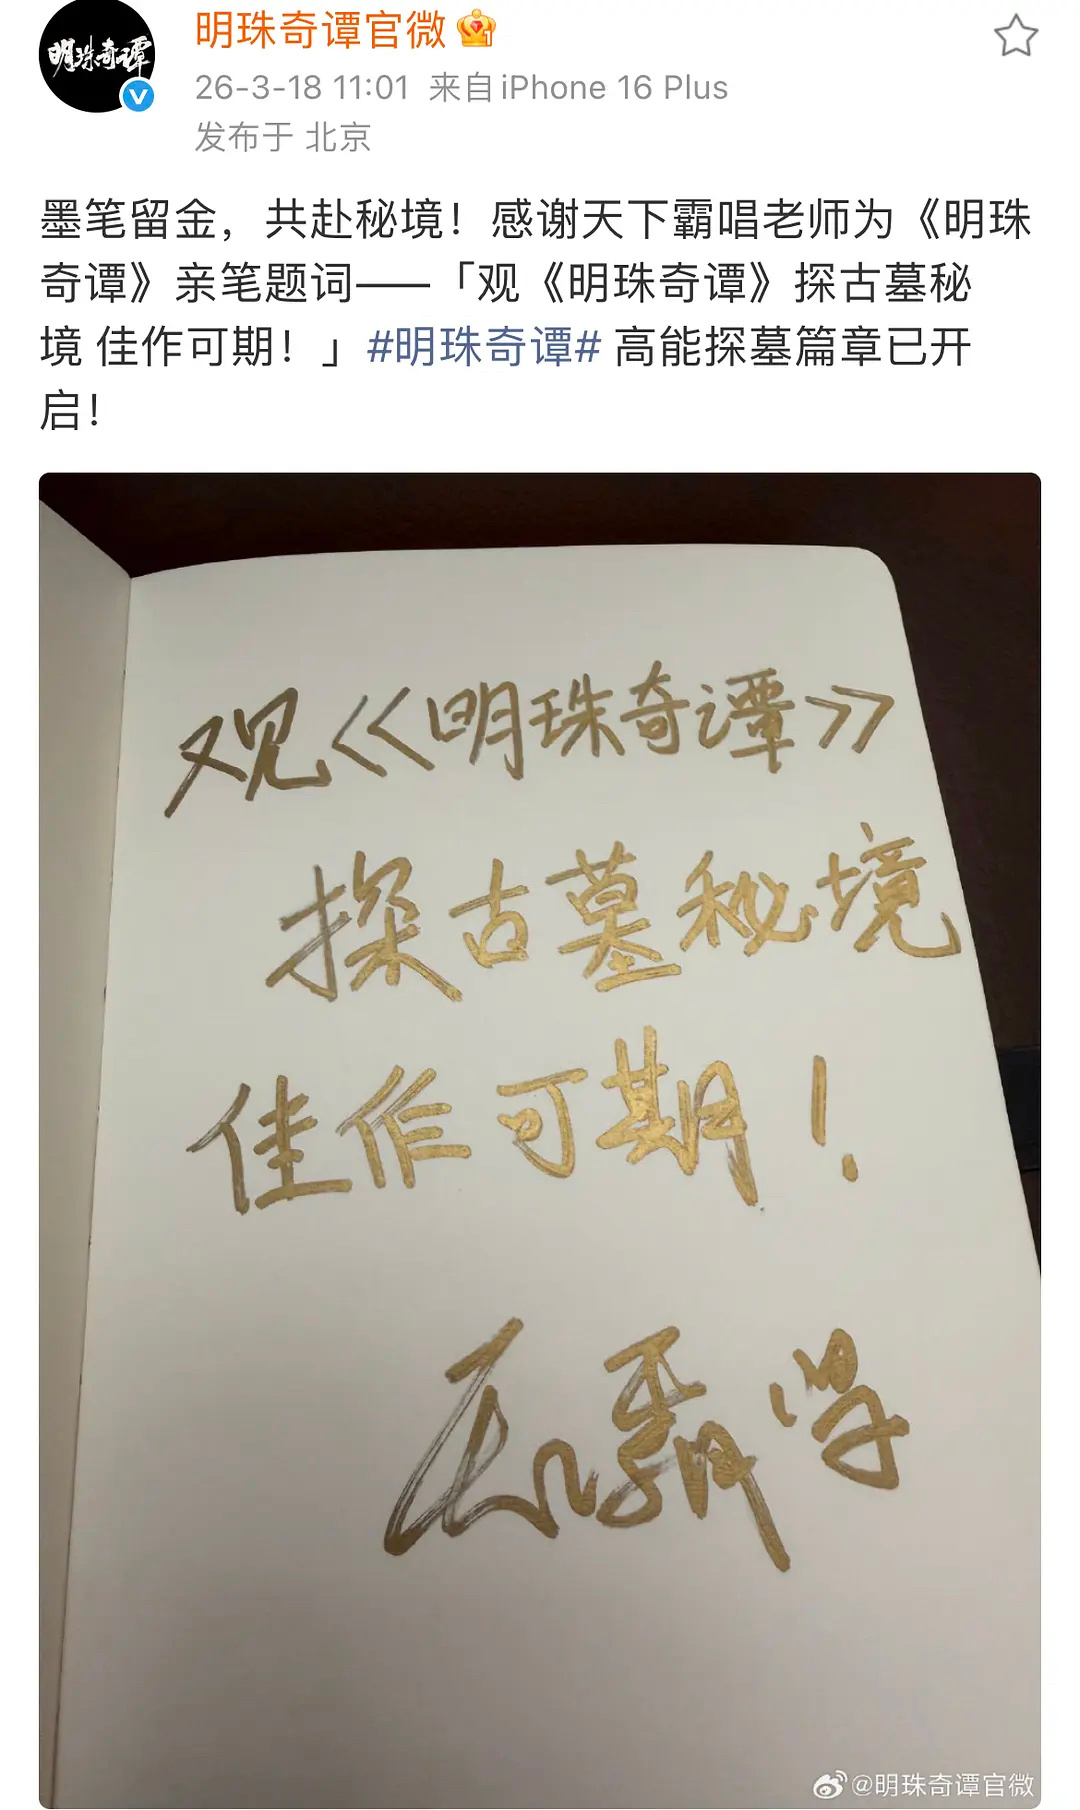 明珠奇谭
明珠奇谭官微
26-3-18 11:01 来自 iPhone 16 Plus
发布于 北京
墨笔留金，共赴秘境！感谢天下霸唱老师为《明珠
奇谭》亲笔题词——「观《明珠奇谭》探古墓秘
境 佳作可期！」#明珠奇谭# 高能探墓篇章已开
启！
观《明珠奇谭》
探古墓秘境
佳作可期！
@明珠奇谭官微